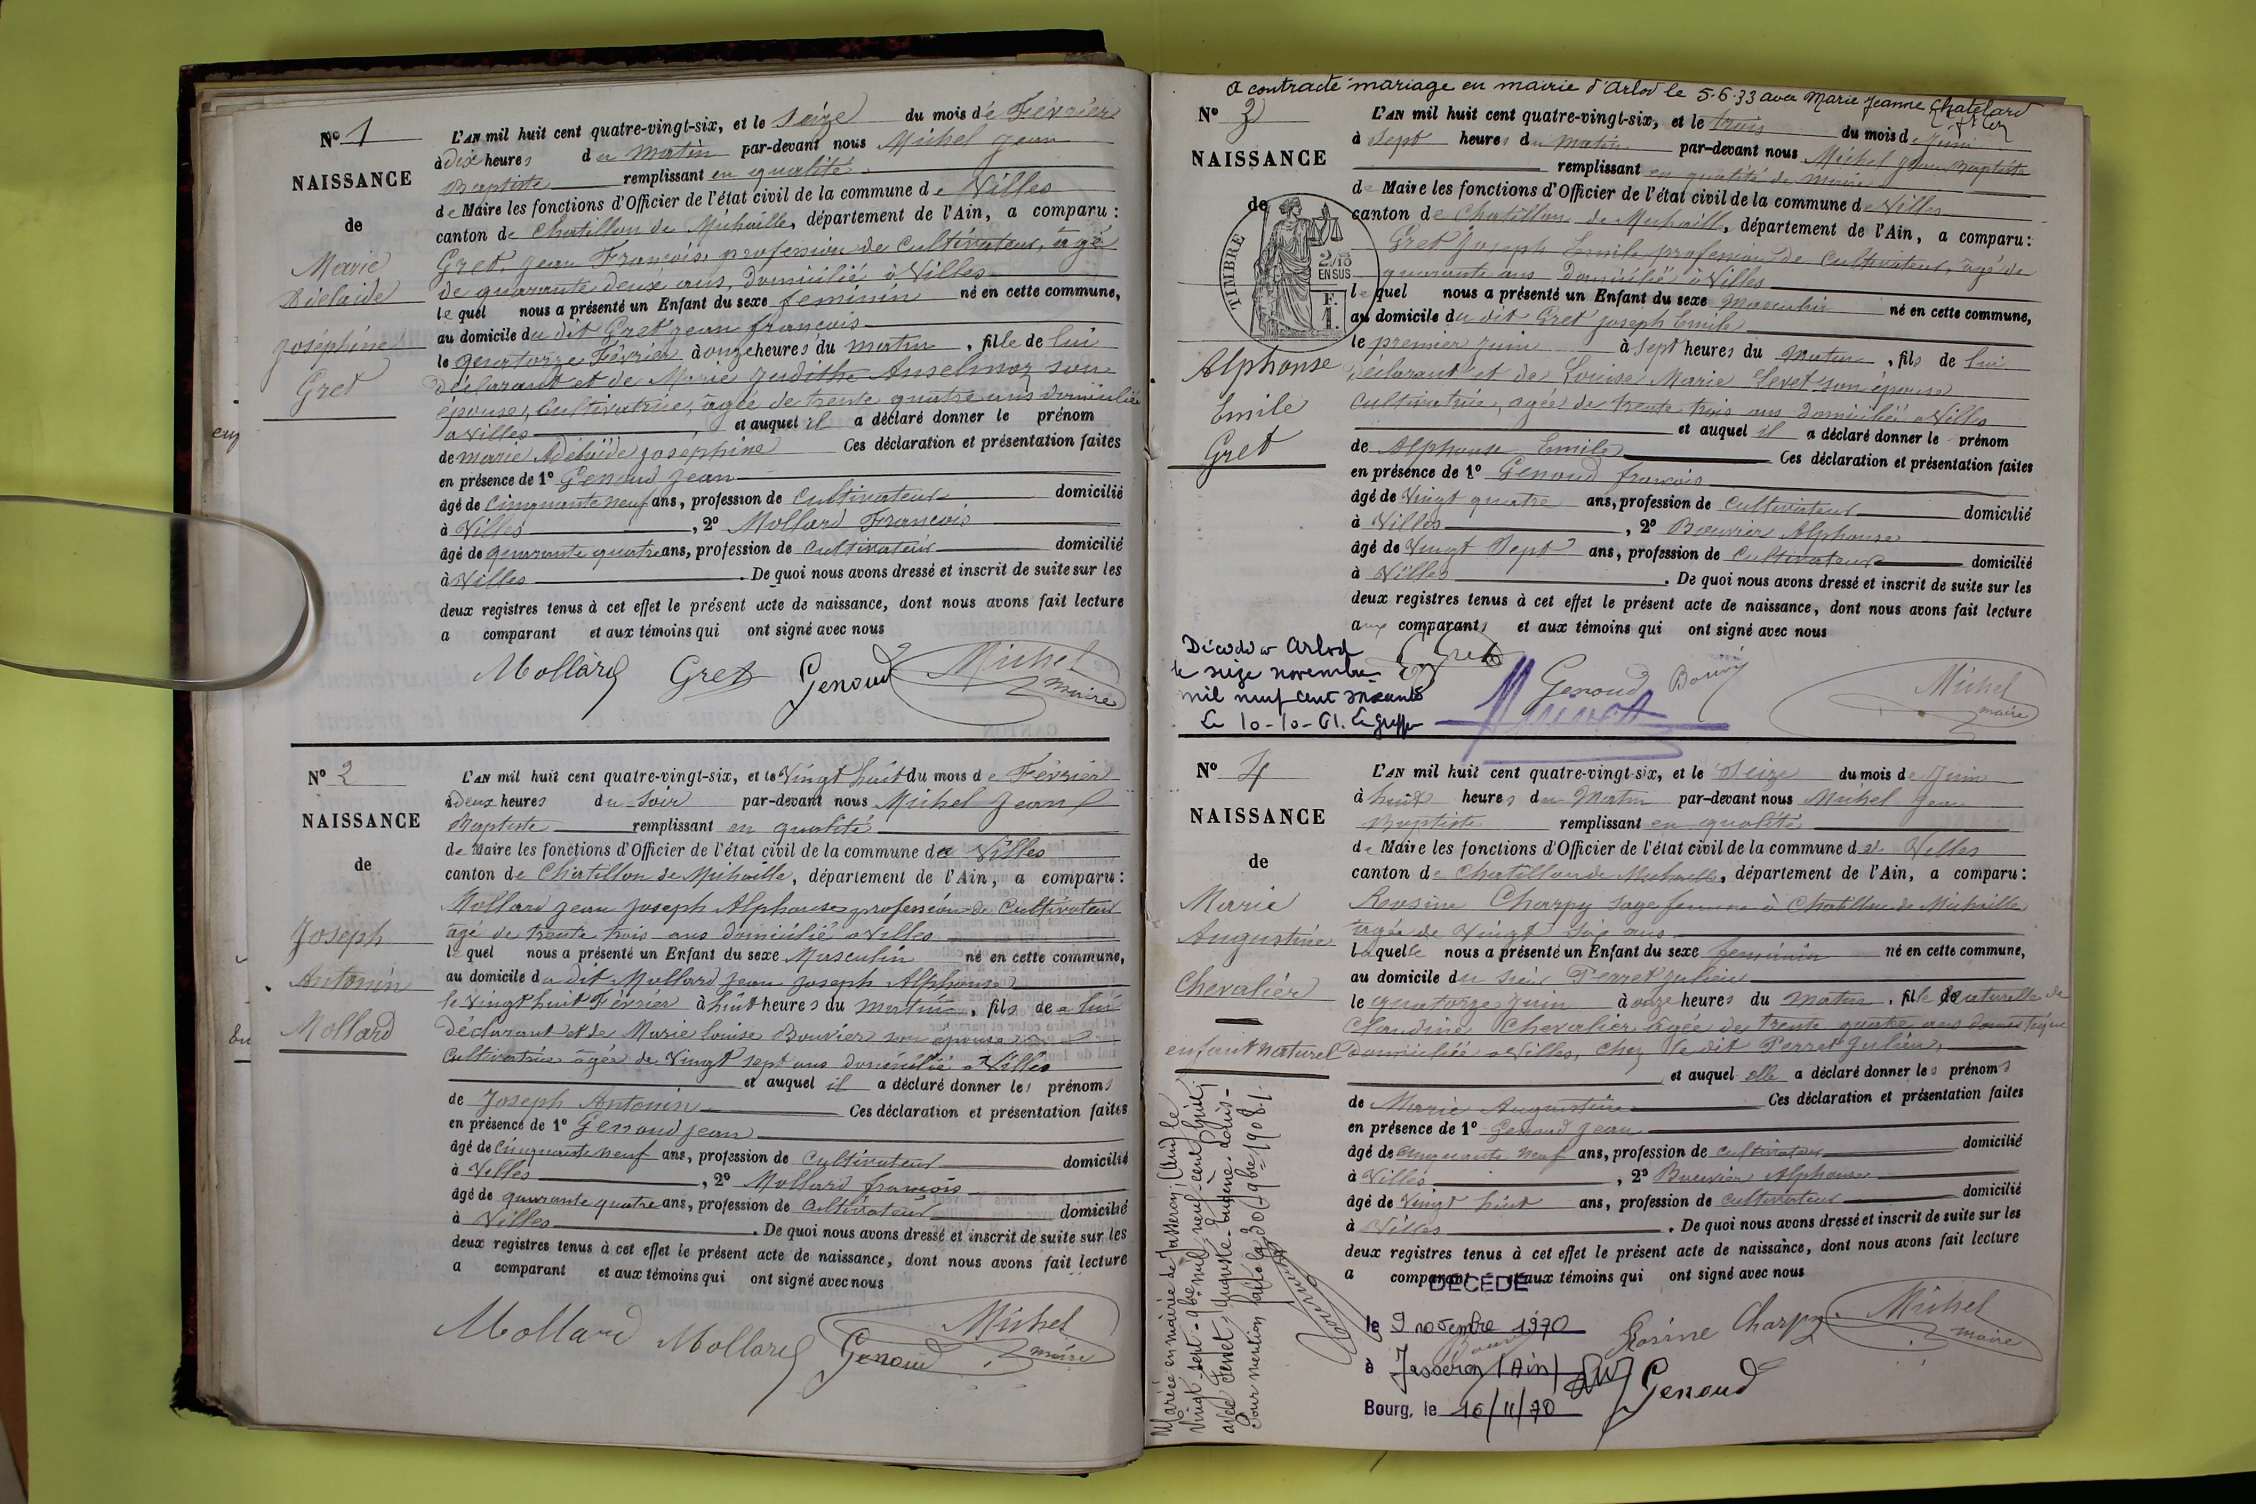 N° 1
NAISSANCE
de
Marie
Adelaide
Joséphine
Gret
L'AN mil huit cent quatre-vingt-six, et le Seize du mois de Février
à dix heures du matin par-devant nous Michel Jean
Baptiste remplissant en qualité
de Maire les fonctions d'Officier de l'état civil de la commune de Villes
canton de Chatillon de Michaille, département de l'Ain, a comparu :
Gret Jean François, profession de Cultivateur, âgé
de quarante deux ans, domicilié à Villes
lequel nous a présenté un Enfant du sexe féminin né en cette commune,
au domicile du dit Gret Jean françois
le quatorze Février à onze heures du matin, fille de lui
Déclarant et de Marie Judithe Anselmoz son
épouse, Cultivatrice, âgée de trente quatre ans domiciliée
à Villes et auquel il a déclaré donner le prénom
de marie Adélaïde joséphine Ces déclaration et présentation faites
en présence de 1° Genoud Jean
âgé de Cinquante neuf ans, profession de Cultivateur domicilié
à Villes, 2° Mollard François
âgé de quarante quatre ans, profession de Cultivateur domicilié
à Villes. De quoi nous avons dressé et inscrit de suite sur les
deux registres tenus à cet effet le présent acte de naissance, dont nous avons fait lecture
a comparant et aux témoins qui ont signé avec nous
Mollard Gret Genoud Michel
maire
N° 2
NAISSANCE
de
Joseph
Antonin
Mollard
L'AN mil huit cent quatre-vingt-six, et le Vingt huit du mois de Février
à deux heures du Soir par-devant nous Michel Jean
Baptiste remplissant en qualité
de Maire les fonctions d'Officier de l'état civil de la commune de Villes
canton de Chatillon de Michaille, département de l'Ain, a comparu :
Mollard Jean Joseph Alphonse profession de Cultivateur
âgé de trente trois ans domicilié à Villes
lequel nous a présenté un Enfant du sexe Masculin né en cette commune,
au domicile du dit Mollard Jean Joseph Alphonse
le Vingt huit Février à huit heures du matin, fils de lui
Déclarant et de Marie Louise Bouvier son épouse
Cultivatrice âgée de Vingt sept ans domiciliée à Villes
et auquel il a déclaré donner les prénoms
de Joseph Antonin Ces déclaration et présentation faites
en présence de 1° Genoud Jean
âgé de Cinquante neuf ans, profession de Cultivateur domicilié
à Villes, 2° Mollard françois
âgé de quarante quatre ans, profession de Cultivateur domicilié
à Villes. De quoi nous avons dressé et inscrit de suite sur les
deux registres tenus à cet effet le présent acte de naissance, dont nous avons fait lecture
a comparant et aux témoins qui ont signé avec nous
Mollard Mollard Genoud Michel
maire
a contracté mariage en mairie d'Arlod le 5.6.33 avec Marie Jeanne Chatelard
N° 3
NAISSANCE
de
TIMBRE
EN SUS
Alphonse
Emile
Gret
L'AN mil huit cent quatre-vingt-six, et le trois du mois de Juin
à Sept heures du matin par-devant nous Michel Jean Baptiste
remplissant en qualité de maire
de Maire les fonctions d'Officier de l'état civil de la commune de Villes
canton de Chatillon de Michaille, département de l'Ain, a comparu :
Gret Joseph Emile profession de Cultivateur, âgé de
quarante ans Domicilié à Villes
lequel nous a présenté un Enfant du sexe Masculin né en cette commune,
au domicile du dit Gret Joseph Emile
le premier juin à sept heures du Matin, fils de lui
Déclarant et de Louise Marie son épouse
Cultivatrice, agée de trente trois ans domiciliée à Villes
et auquel il a déclaré donner le prénom
de Alphonse Emile Ces déclaration et présentation faites
en présence de 1° Genoud françois
âgé de Vingt quatre ans, profession de Cultivateur domicilié
à Villes, 2° Bouvier Alphonse
âgé de Vingt Sept ans, profession de Cultivateur domicilié
à Villes. De quoi nous avons dressé et inscrit de suite sur les
deux registres tenus à cet effet le présent acte de naissance, dont nous avons fait lecture
aux comparants et aux témoins qui ont signé avec nous
Gret Genoud Michel
maire
Décédé à Arlod
le seize novembre
mil neuf cent soixante
Le 10-10-61. Le greffier
N° 4
NAISSANCE
de
Marie
Augustine
Chevalier
enfant naturel
L'AN mil huit cent quatre-vingt-six, et le Seize du mois de Juin
à huit heures du Matin par-devant nous Michel Jean
Baptiste remplissant en qualité
de Maire les fonctions d'Officier de l'état civil de la commune de Villes
canton de Chatillon de Michaille, département de l'Ain, a comparu :
Rosine Charpy sage femme à Chatillon de Michaille
agée de Vingt six ans
laquelle nous a présenté un Enfant du sexe féminin né en cette commune,
au domicile du sieur Perret Julien
le quatorze juin à onze heures du matin, fille naturelle de
Claudine Chevalier agée de trente quatre ans domestique
domiciliée à Villes, chez le dit Perret Julien,
et auquel elle a déclaré donner les prénoms
de Marie Augustine Ces déclaration et présentation faites
en présence de 1° Genoud Jean
âgé de cinquante neuf ans, profession de cultivateur domicilié
à Villes, 2° Bouvier Alphonse
âgé de Vingt huit ans, profession de cultivateur domicilié
à Villes. De quoi nous avons dressé et inscrit de suite sur les
deux registres tenus à cet effet le présent acte de naissance, dont nous avons fait lecture
a comparant et aux témoins qui ont signé avec nous
DÉCÉDÉ
le 9 novembre 1970
à Jasseron (Ain)
Bourg, le 16/11/70
Rosine Charpy Michel
maire
Genoud
Mariée en mairie de Jasseron, (Ain) le
vingt-sept-9bre mil neuf-cent huit,
avec Ferret, Auguste-Eugène-Louis-
Pour mention faite le 30/9bre 1908.